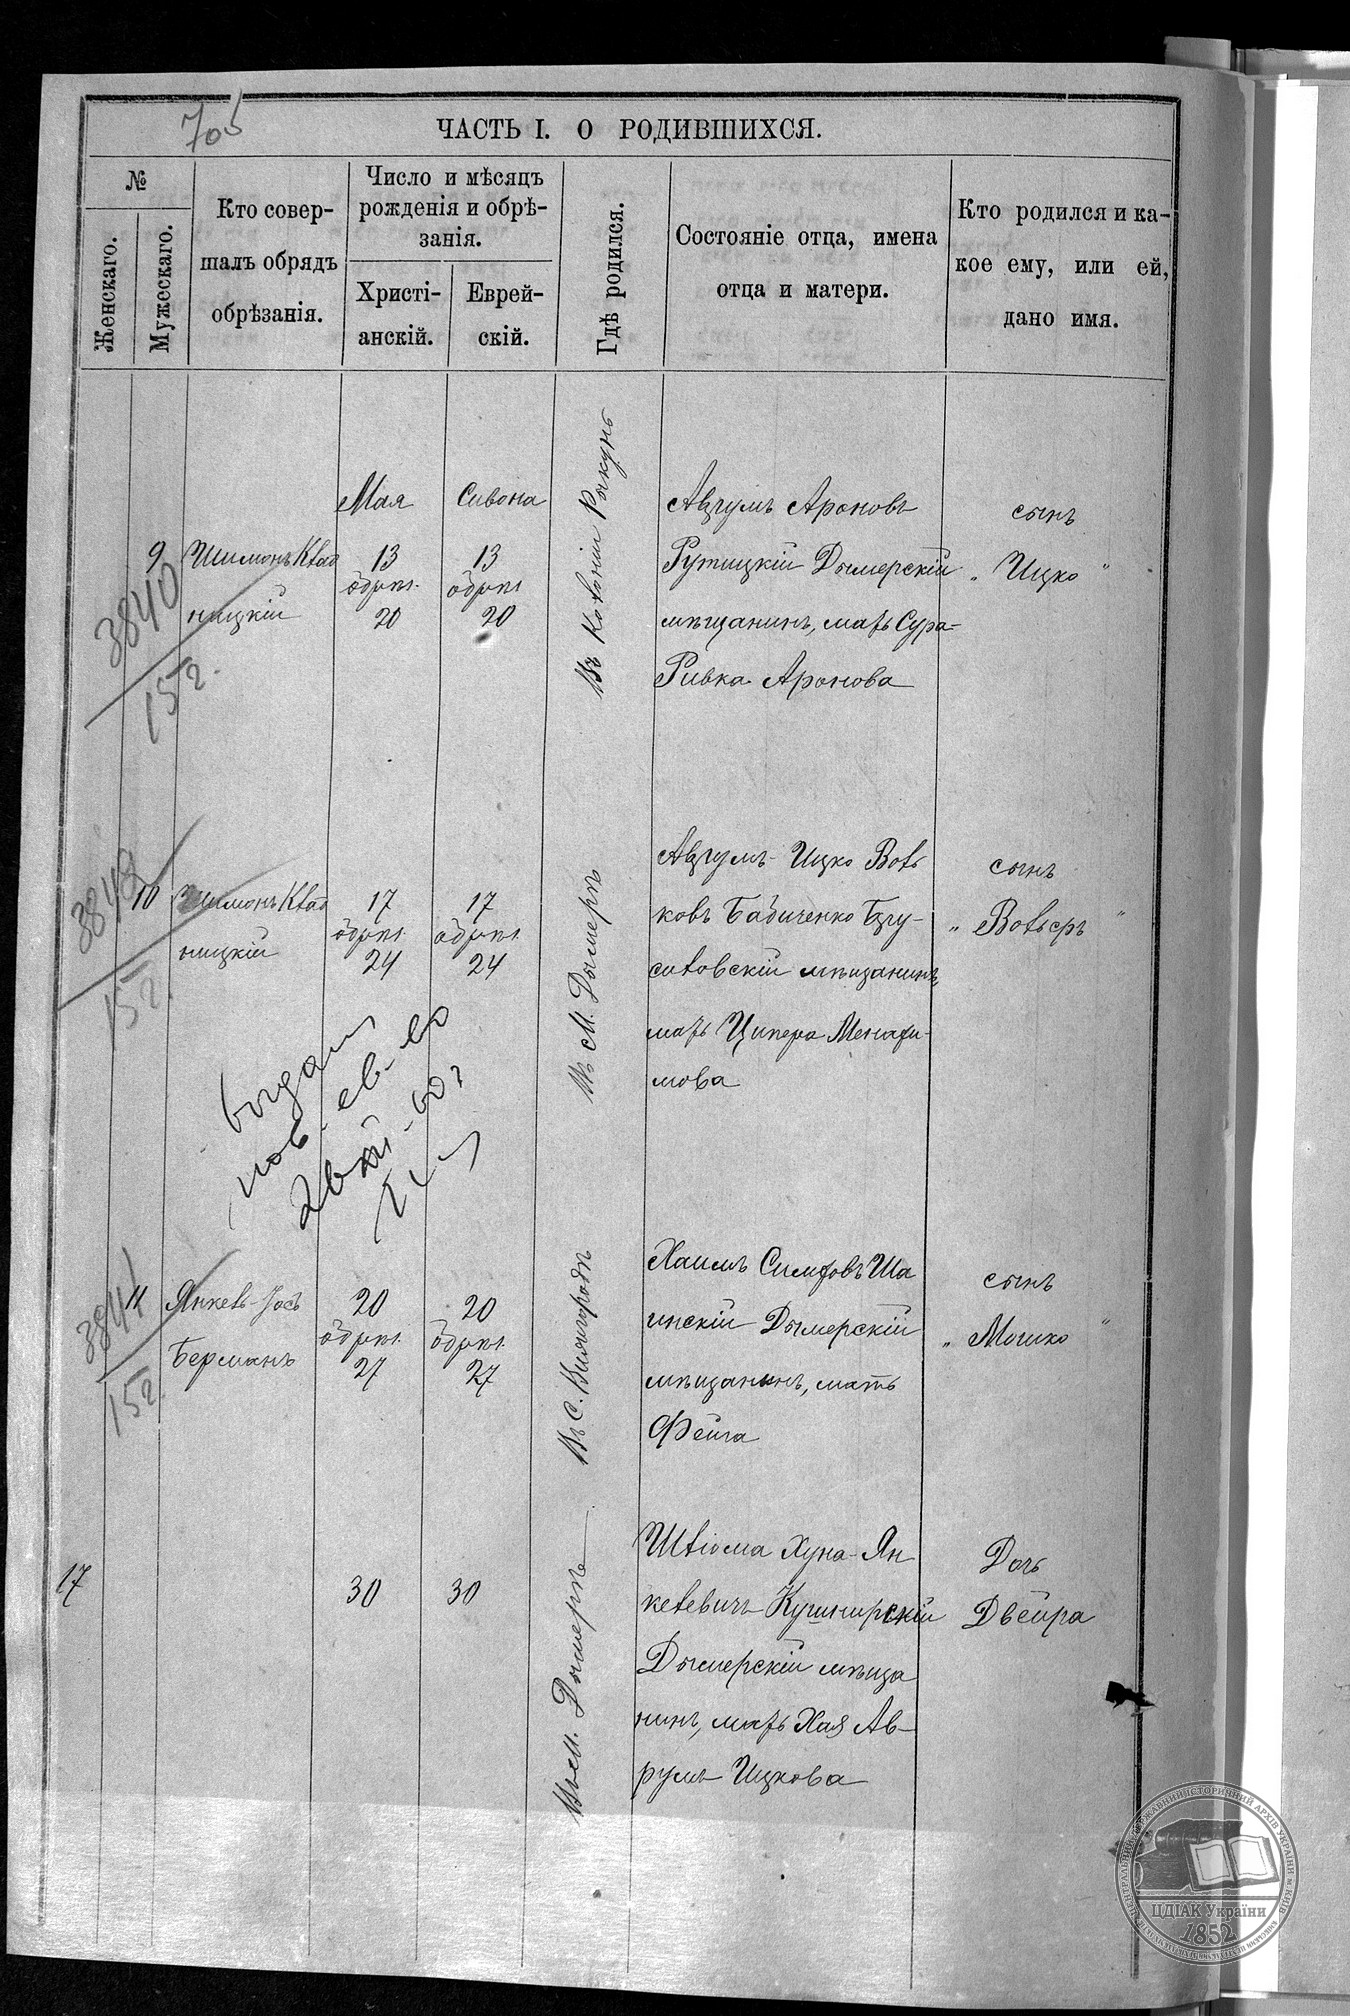 705
ЧАСТЬ I. О РОДИВШИХСЯ.
№
Женскаго.
Мужескаго.
Кто совер-
шалъ обрядъ
обрѣзанія.
Число и мѣсяцъ
рожденія и обрѣ-
занія.
Христі-
анскій.
Еврей-
скій.
Гдѣ родился.
Состояніе отца, имена
отца и матери.
Кто родился и ка-
кое ему, или ей,
дано имя.
9
Шимонъ Квас
ницкій
Мая
13
обрѣз.
20
Сивона
13
обрѣз.
20
Въ Колоніи Рыкунь
Аврумъ Ароновъ
Рутицкій Дымерскій
мѣщанинъ, мать Сура-
Ривка Аронова
сынъ
„ Ицко "
3840
152.
10
Шимонъ Квас
ницкій
17
обрѣз.
24
17
обрѣз.
24
Въ М. Дымерѣ
Аврумъ-Ицко Вольковъ
ковъ Бабиченко
мѣщанинъ,
мать Ципера
мова
сынъ
„ Вольфъ "
152.
11
Янкель-Іосъ
Берманъ
20
обрѣз.
27
20
обрѣз.
27
Въ С.
Хаимъ Ша
инскій Дымерскій
мѣщанинъ, мать
Фейга
сынъ
„ Мошко "
3841
152
17
30
30
Въ М. Дымерѣ
Шліома Хуна-Ян
келевичъ Кушнирскій
Дымерскій мѣща
нинъ, мать Хая Ав-
румъ Ицкова
Дочь
Двейра
ЦДІАК України
1852